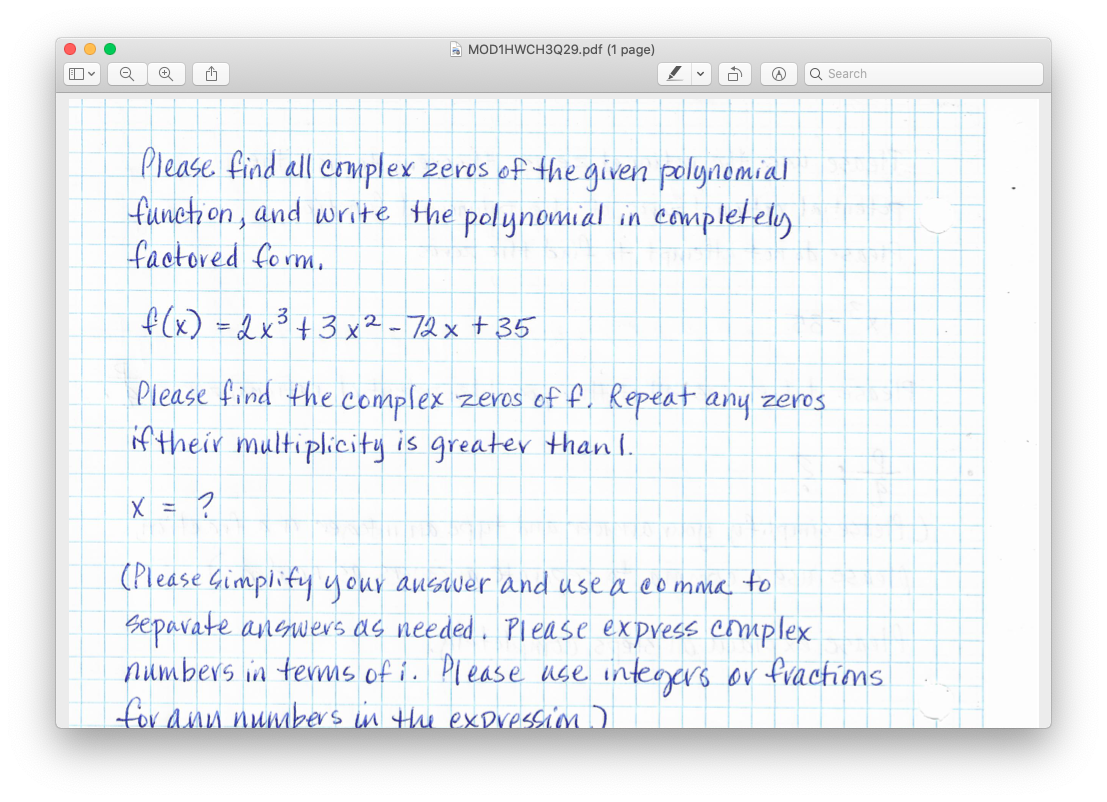 MOD1HWCH3Q29.pdf (1 page)
Search
Please find all complex zeros of the given polynomial
function, and write the polynomial in completely
factored form.
f(x) = 2x³ + 3x² - 72x + 35
Please find the complex zeros of f. Repeat any zeros
if their multiplicity is greater than 1.
x = ?
(Please simplify your answer and use a comma to
separate answers as needed. Please express complex
numbers in terms of i. Please use integers or fractions
for any numbers in the expression.)